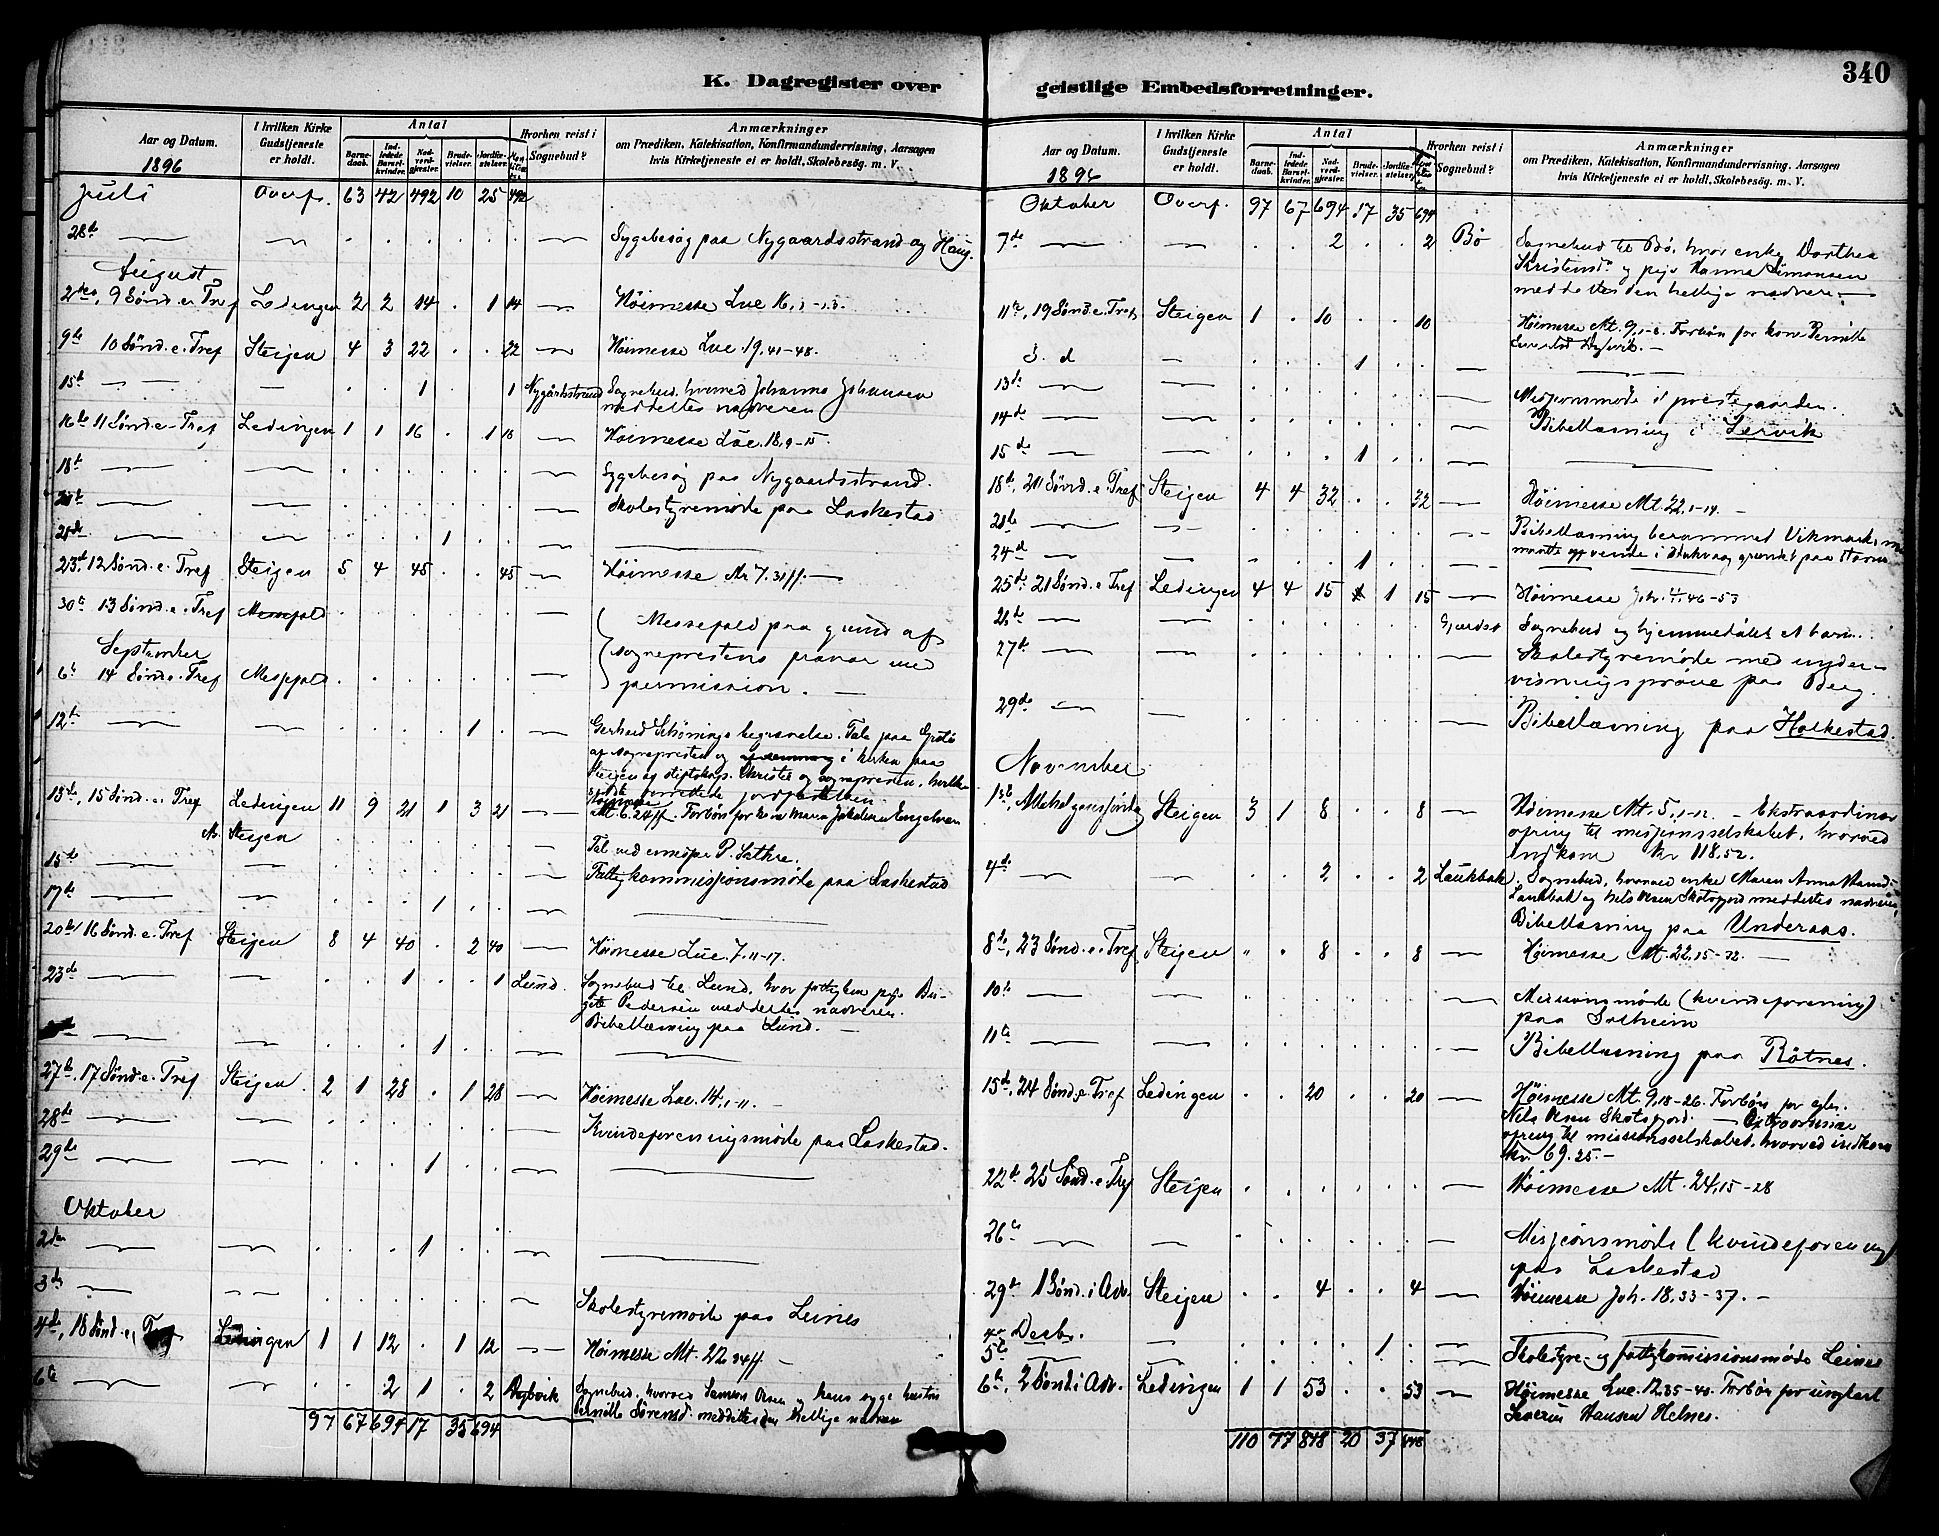 K. Dagregister over
Aar og Datum.
1896
I hvilken Kirke Gudstjeneste er holdt.
Antal
Barnedaab.
Indledede Barselkvinder.
Nadverdgjester.
Brudevielser.
Jordfæstelser.
Hvorhen reist i Sognebud?
Anmærkninger
om Prædiken, Katekisation, Konfirmandundervisning, Aarsagen
hvis Kirketjeneste ei er holdt, Skolebesög. m. V.
Juli Overf. 63 42 492 10 25 492
28de Sygebesøg paa Nygaardsstrand og Haug.
August
2den, 9 Sønd. e. Tref Ledingen 2 2 14 . 1 14 Høimesse Luc 16,1-13.
9de 10 Sønd. e. Tref Steigen 4 3 22 . . 22 Høimesse Luc. 19,41-48.
15de 1 1 Nygårdsstrand Sognebud, hvorved Johanna Johansen
meddeltes nadveren
16de 11 Sønd. e. Tref Ledingen 1 1 16 . 1 16 Høimesse Luc. 18,9-15.
18de Sygebesøg paa Nygaardsstrand.
Skolestyremøde paa Laskestad
1
23de 12 Sønd. e. Tref Steigen 5 4 45 . . 45 Høimesse Mr 7,31ff.
30te 13 Sønd. e. Tref Messefald Messefald paa grund af
September sogneprestens fravær med
6te 14 Sønd. e. Tref Messfald permission.
12te 1 Gerhard Schønings begravelse. Tale paa Grøtø
af sognepresten og i kirken paa
Steigen af stiftskap. Christie og sognepresten, hvilken
sidste forrettede jordfæstelsen.
13de, 15 Sønd. e. Tref Ledingen 11 9 21 1 3 21 Høimesse Mt. 6,24ff. Forbøn for
Steigen
15de Fattigkommissjonsmøde paa Laskestad
17de 1
20de, 16 Sønd. e. Tref Steigen 8 4 40 . 2 40 Høimesse Luc. 7,11-17.
23de 1 1 Lund. Sognebud til Lund, hvor fattiglem pige Bir-
gite Pedersen meddeltes nadveren.
Bibellæsning paa Lund.
1
27de, 17 Sønd. e. Tref Steigen 2 1 28 . 1 28 Høimesse Luc. 14,1-11.
28de Kvindeforeningsmøde paa Laskestad.
29de 1
Oktober
2den 1
3de Skolestyremøde paa Leines
4de, 18 Sønd. e. Tref Ledingen 1 1 12 . 1 12 Høimesse Mt. 22,34ff.
6te 2 1 . 2 Dybvik Sognebud, hvorved Samson Olsen og hans syge hustru
Pernille Sørensd. meddeltes den hellige nadver
97 67 694 17 35 694
geistlige Embedsforretninger.
340
Aar og Datum.
1896
I hvilken Kirke Gudstjeneste er holdt.
Antal
Barnedaab.
Indledede Barselkvinder.
Nadverdgjester.
Brudevielser.
Jordfæstelser.
Hvorhen reist i Sognebud?
Anmærkninger
om Prædiken, Katekisation, Konfirmandundervisning, Aarsagen
hvis Kirketjeneste ei er holdt, Skolebesög. m. V.
Oktober Overf. 97 67 694 17 35 694
7de 2 . . 2 Bø Sognebud til Bø, hvor enke Dorthea
Kristensd. og pige Hanna Simonsen
meddeltes den hellige nadvere.
11te, 19 Sønd. e. Tref Steigen 1 . 10 . . 10 Høimesse Mt. 9,1-8. Forbøn for kone Pernille
S. d 1
13de Misjonsmøde i prestegaarden.
14de Bibellæsning i Lervik
15de 1
18de, 20 Sønd. e. Tref Steigen 4 4 32 . . 32 Høimesse Mt. 22,1-14.
Bibellæsning berammed Vikmark,
24de 1
25de 21 Sønd. e. Tref Ledingen 4 4 15 1 15 Høimesse Joh. 4,46-53
26de Sognebud og hjemmedåbt et barn.
27de Skolestyremøde med under-
visningsprøve paa Berg.
29de Bibellæsning paa Holkestad.
November
1ste, Allehelgenssøndag Steigen 3 1 8 . . 8 Høimesse Mt. 5,1-12. Ekstraordinær
ofring til misjonsselskabet, hvorved
indkom kr 118,52.
4de 2 . . 2 Laukbak Sognebud, hvorved enke Maren Anna
Laukbak og Nels Olsen Skotsfjord meddeltes nadveren,
Bibellæsning paa Underaas.
8de, 23 Sønd. e. Tref Steigen " . 8 . . 8 Høimesse Mt. 22,15-22.
10de Missionsmøde (kvindeforening)
paa Solheim
11te Bibellæsning paa Røtnes.
15de, 24 Sønd. e. Tref Ledingen . . 20 . . 20 Høimesse Mt. 9,18-26. Forbøn for
Nils Olsen Skotsfjord.
ofring til missionsselskabet, hvorved indkom
kr. 69.25.
22de 25 Sønd. e. Tref Steigen Høimesse Mt. 24,15-28
26te Misjonsmøde (kvindeforening)
paa Laskestad
29de 1 Sønd. i Adv. Steigen . . 4 . . 4 Høimesse Joh. 18,33-37.
4de Decbr. 1
5te Skolestyre- og fattigkommissionsmøde Leines
6te, 2 Sønd. i Adv. Ledingen 1 1 53 . . 53 Høimesse Luc. 12,35-40. Forbøn for ungkarl
Severin Hansen Helnes.
110 77 848 20 37 848